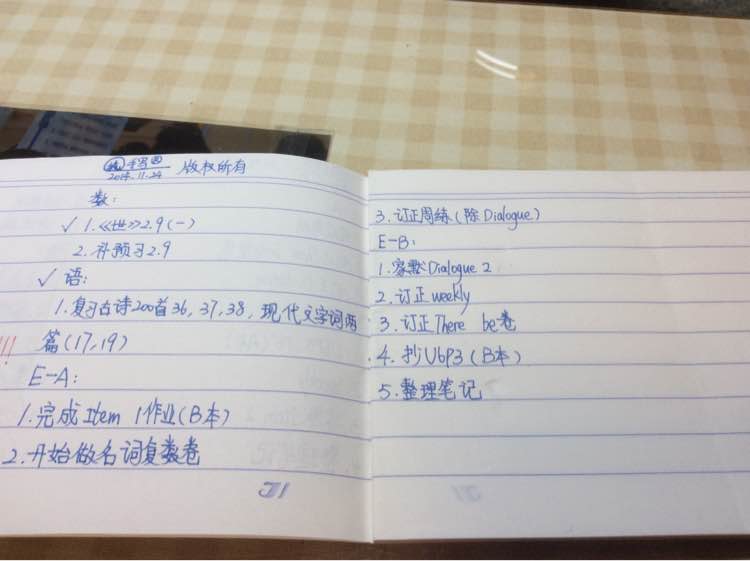 手写 版权所有
2014.11.24
数:
✓ 1.《世》2.9(一)
2.补预习2.9
✓ 语:
1.复习古诗200首36,37,38,现代文字词两
!!! 篇(17,19)
E-A:
1.完成Item 1作业(B本)
2.开始做名词复数卷
3.订正周练(除Dialogue)
E-B:
1.家默Dialogue 2
2.订正weekly
3.订正There be卷
4.抄U6P3(B本)
5.整理笔记